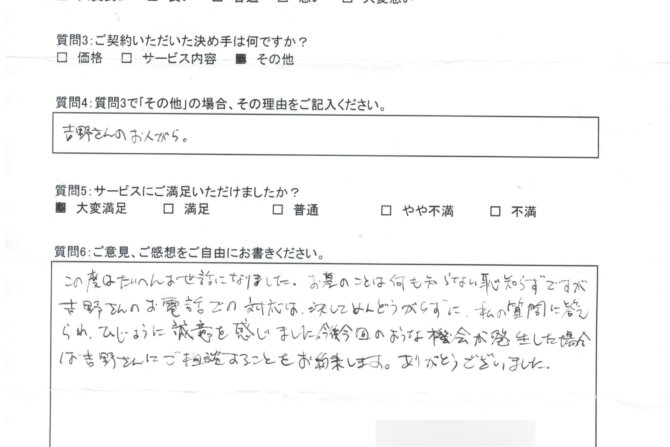 質問3:ご契約いただいた決め手は何ですか?
□ 価格 □ サービス内容 ■ その他
質問4:質問3で「その他」の場合、その理由をご記入ください。
吉野さんのお人がら。
質問5:サービスにご満足いただけましたか?
■ 大変満足 □ 満足 □ 普通 □ やや不満 □ 不満
質問6:ご意見、ご感想をご自由にお書きください。
この度はたいへんお世話になりました。お墓のことは何も知らない恥知らずですが
吉野さんのお電話での対応は、決してめんどうがらずに、私の質問に答え
られ、ひじょうに誠意を感じました。今後今回のような機会が発生した場合
は吉野さんにご相談することをお約束します。ありがとうございました。